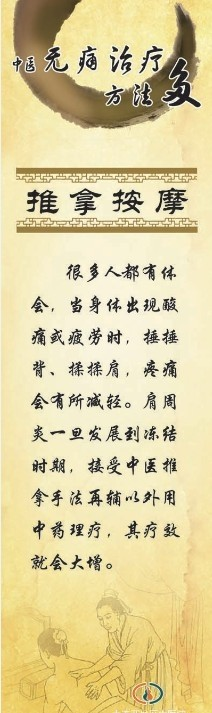 中医无痛治疗
方法多
推拿按摩
很多人都有体
会，当身体出现酸
痛或疲劳时，捶捶
背、揉揉肩，疼痛
会有所减轻。肩周
炎一旦发展到冻结
时期，接受中医推
拿手法再辅以外用
中药理疗，其疗效
就会大增。